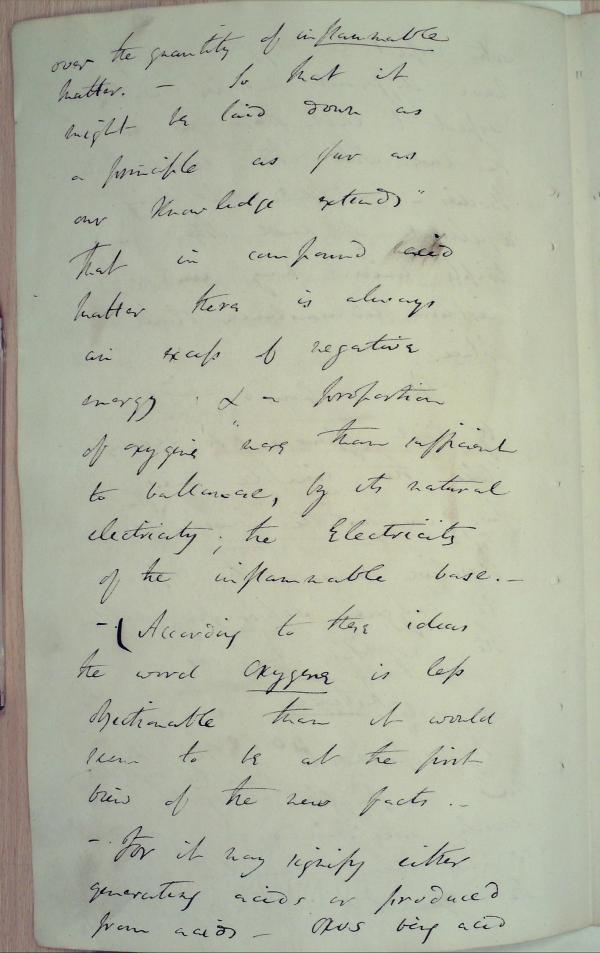 over the quantity of inflammable
matter. - So that it
might be laid down as
a principle as far as
our Knowledge extends"
that in compound acid
matter there is always
an excess of negative
energy . & a proportion
of oxygene "more than sufficient
to ballance, by its natural
electricity; the Electricity
of the inflammable base. -
-. ( According to these ideas
the word oxygene is less
objectionable than it would
seem to be at the first
view of the new facts. -
-. For it may signify either
generating acids or produced
from acids - oxus being acid